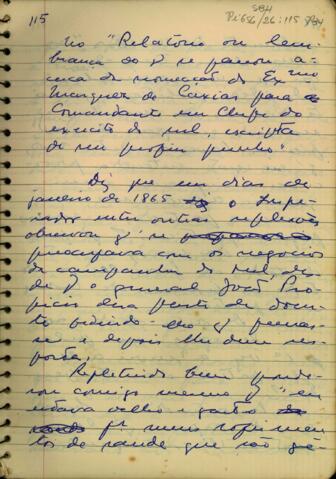 115
SBH
Pi 656/26:115
No "Relatório ou lem-
brança do q̃ se passou a-
cerca da nomeação do Exmo
Marquez de Caxias para o
Commandante em Chefe do
exercito do sul, escripta
de seu proprio punho"
Diz que em dias de
janeiro de 1865 o Impe-
rador entre outras reflexões
observou q̃ se
preocupava com os negocios
da campanha do sul, des-
de q̃ o general João Pro-
picio dera parte de doen-
te pedindo-lhe q̃ pensas-
se e depois lhe desse res-
posta.
Reflectindo bem ponde-
rou comigo mesmo q̃ "eu
estava velho e gasto
pr meus soffrimen-
tos de saude que são ge-